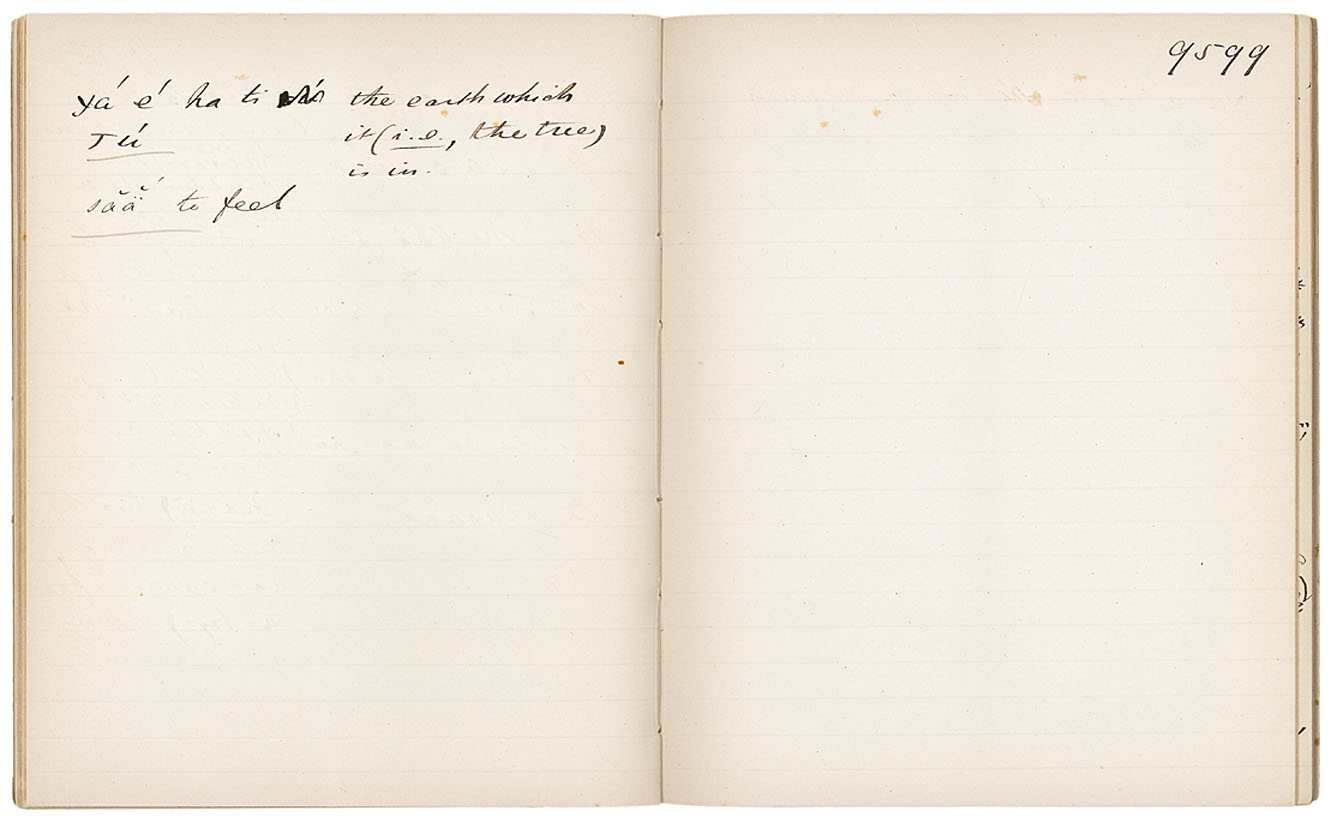 9599
yá é ha ti the earth which
Tú it (i.e., the tree)
is in.
sắä́ to feel